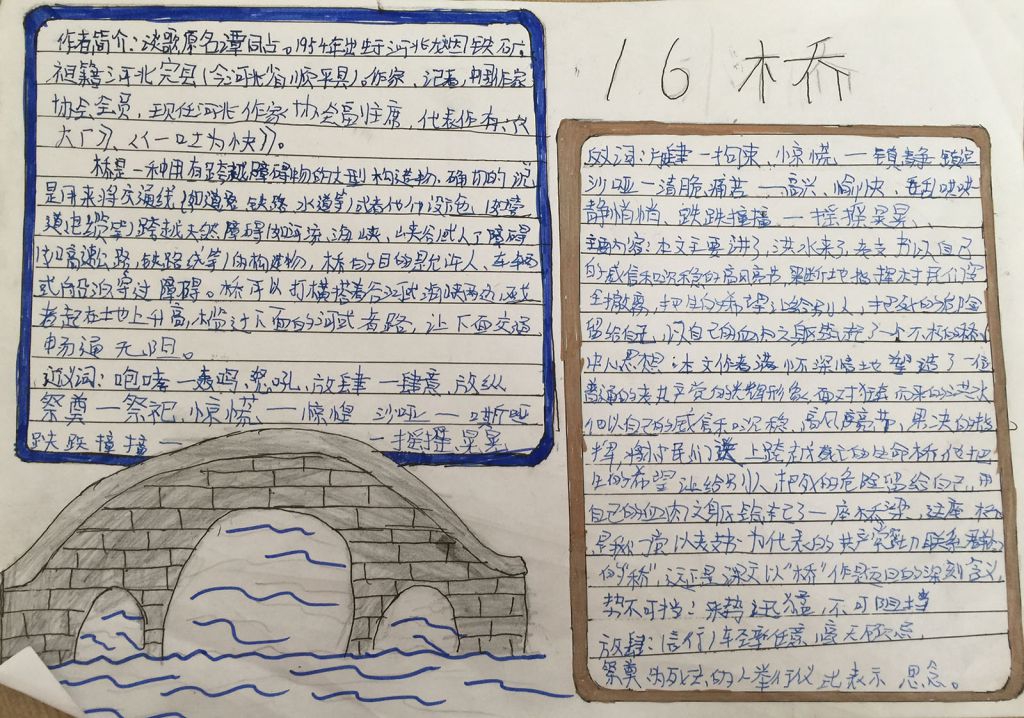 16 木乔
作者简介：谈歌原名谭同占。1954年出生于河北龙烟铁矿。
祖籍河北完县（今河北省顺平县）。作家、记者，中国作家
协会会员，现任河北作家协会副主席，代表作有：《
大厂》、《一口寸为快》。
桥是一种用有跨越障碍物的大型构造物，确切的说
是用来将交通线（如道路、铁路、水道等）或者他们设施（如管
道电缆等）跨越天然障碍（如河流、海峡、峡谷）或人工障碍
（如高速公路、铁路线等）的构建物，桥的目的是允许人、车辆
或船泊穿过障碍。桥可以打横搭着谷河或海峡两边，或
者起在地上升高，槛过下面的河或者路，让下面交通
畅通无阻。
近义词：咆哮一轰鸣、怒吼，放肆一肆意、放纵
祭奠一祭祀、惊慌一惊惶 沙哑一嘶哑
跌跌撞撞一 一摇摇晃晃
反词：放肆一拘束、惊慌一镇静 镇定
沙哑一清脆 痛苦一高兴、愉快，乱哄哄
静悄悄、跌跌撞撞一摇摇晃晃、
主要内容：本文主要讲了，洪水来了，老支书以自己
的威信和沉稳的高风亮节，果断地指挥村民们安
全撤离，把生的希望让给别人，把死的危险
留给自己，以自己的血肉之躯筑起了一个不朽的桥
中心思想：本文作者满怀深情地塑造了一位
普通的老共产党的光辉形象，面对狂奔而来的洪水
他以自己的威信和沉稳，高风亮节，果决的指
挥，将村民们送上跨越死亡的生命桥他把
生的希望让给别人，把死的危险留给自己，用
自己的血肉之躯 了一座桥梁，这座桥
是我 以老支书为代表的共产党 联系群众
的“桥”，这正是课文以“桥”作为题目的深刻含义，
势不可挡：来势迅猛，不可阻挡
放肆：言行轻率任意，毫无顾忌
祭奠 为死去的人举行仪式表示思念。